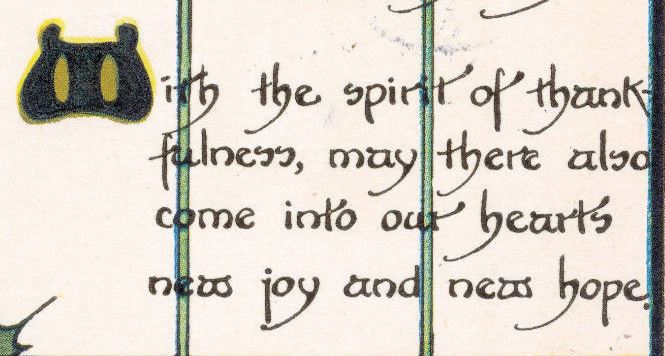 With the spirit of thank-
fulness, may there also
come into our hearts
new joy and new hope.